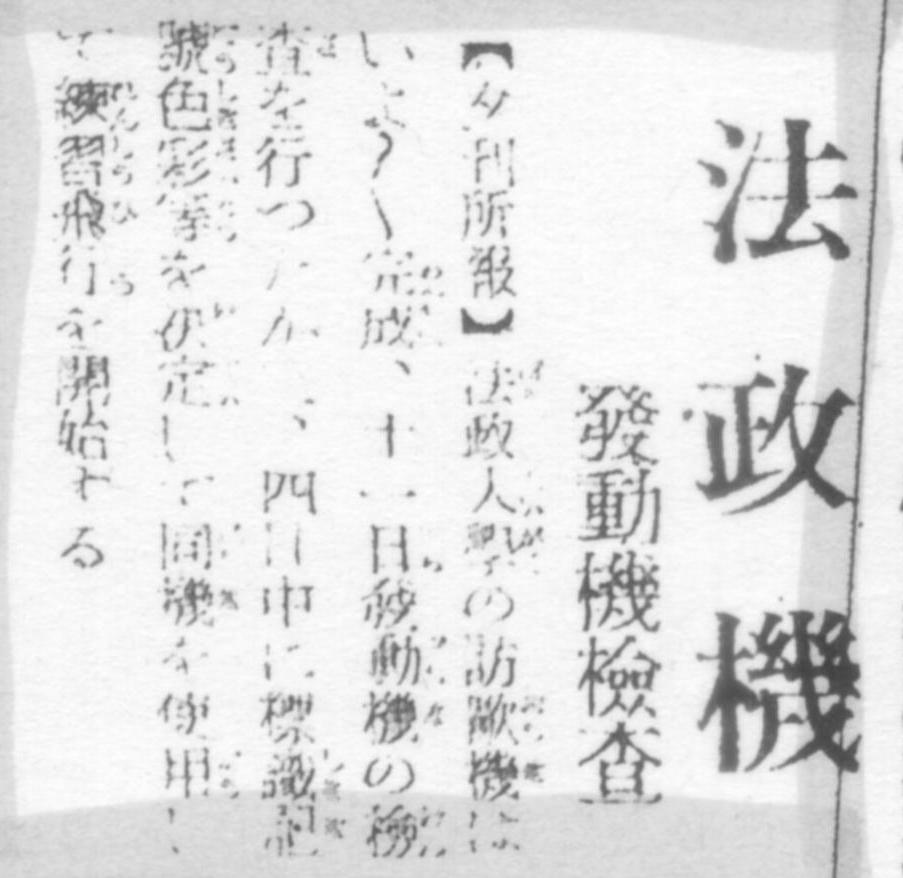 法政機
發動機檢査
【夕刊所報】法政大學の訪歐機は
いよ〳〵完成、十一日發動機の檢
査を行つたが、四日中に標識記
號色彩等を決定して同機を使用し
て練習飛行を開始する